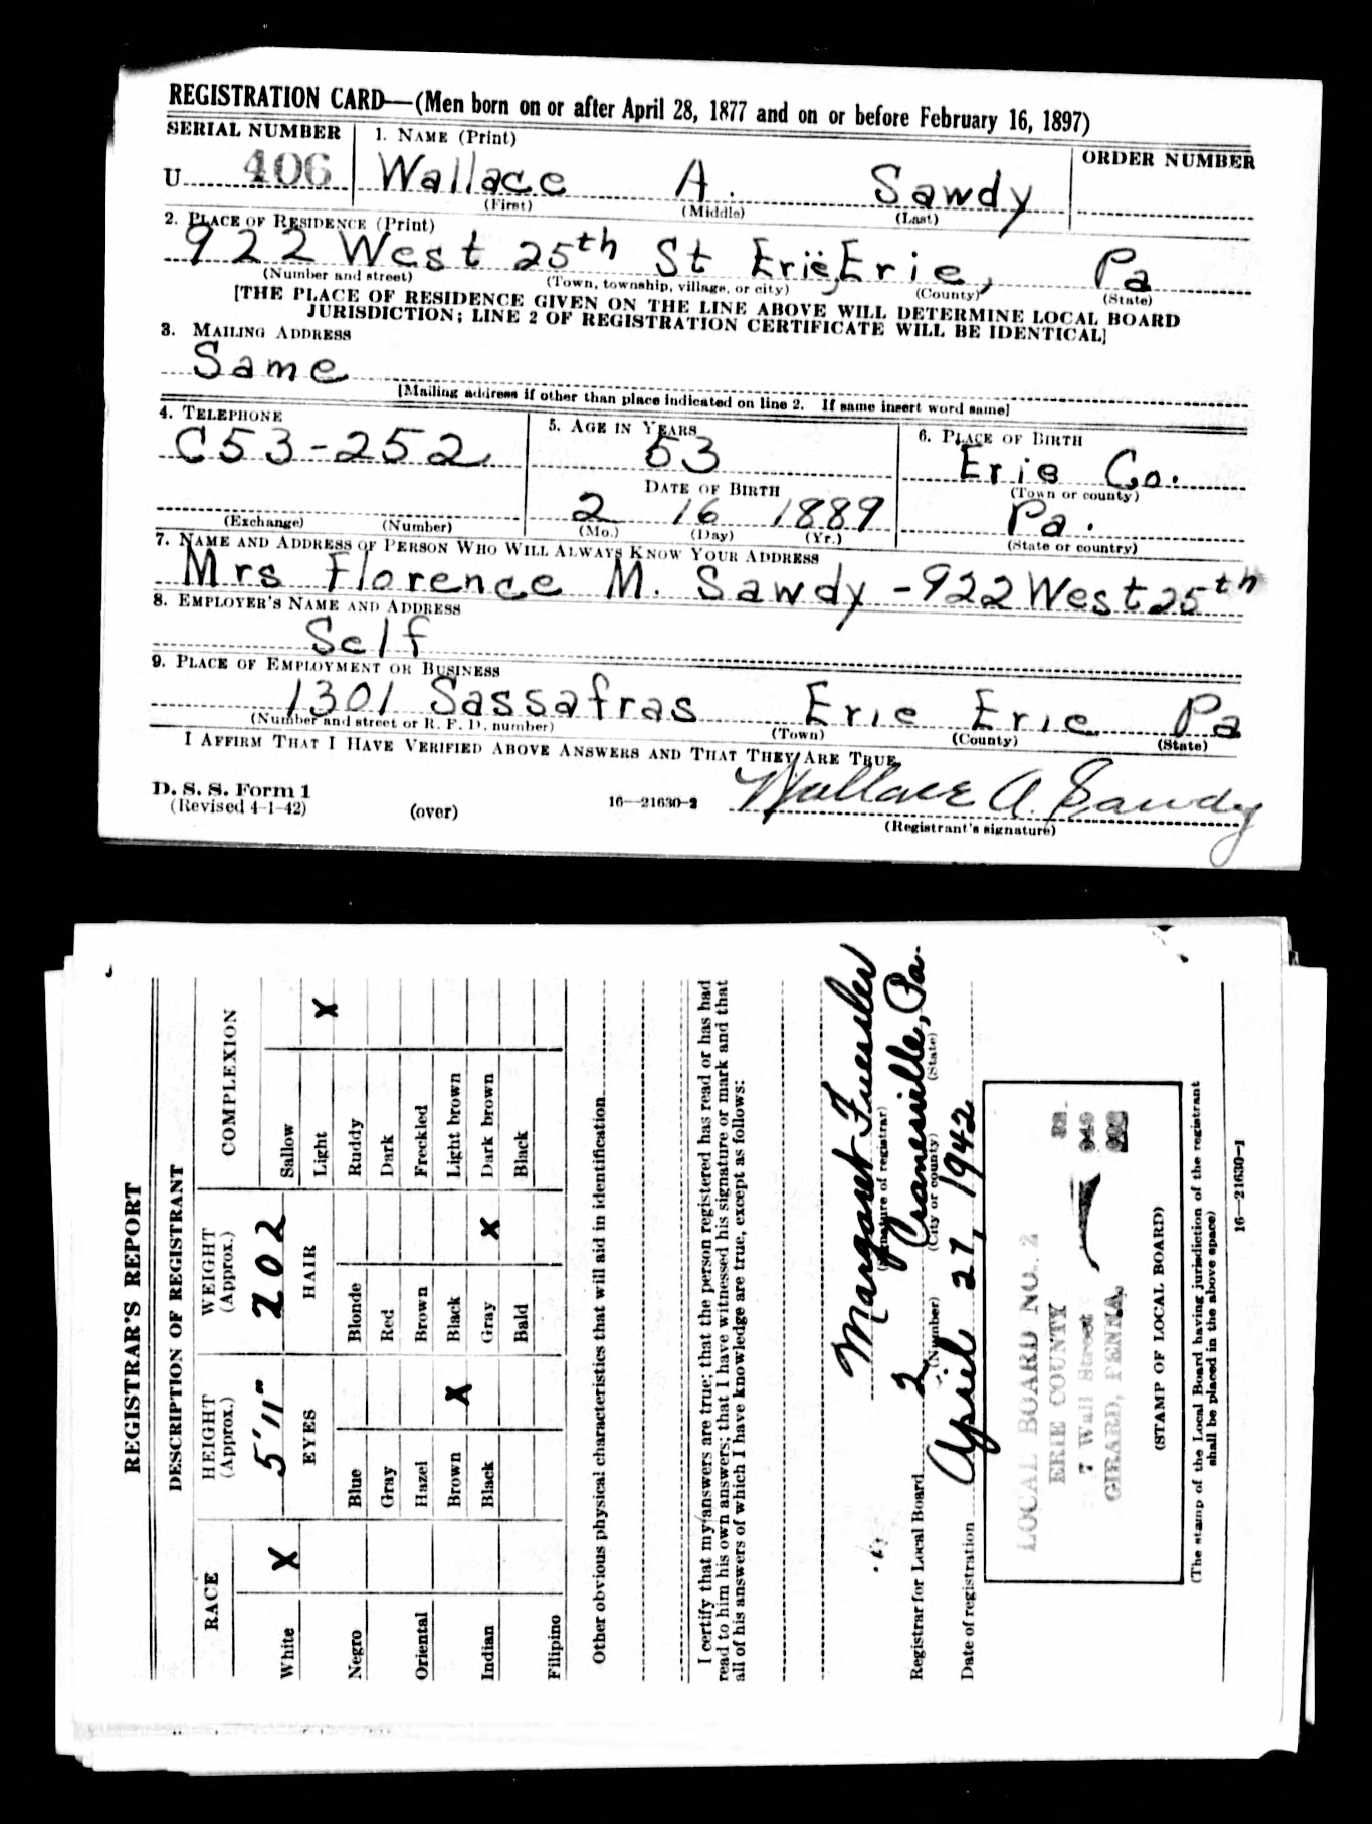 REGISTRATION CARD—(Men born on or after April 28, 1877 and on or before February 16, 1897)
SERIAL NUMBER
1. NAME (Print)
ORDER NUMBER
U 406
Wallace A. Sawdy
(First) (Middle) (Last)
2. PLACE OF RESIDENCE (Print)
922 West 25th St Erie, Erie, Pa
(Number and street) (Town, township, village, or city) (County) (State)
[THE PLACE OF RESIDENCE GIVEN ON THE LINE ABOVE WILL DETERMINE LOCAL BOARD
JURISDICTION; LINE 2 OF REGISTRATION CERTIFICATE WILL BE IDENTICAL]
3. MAILING ADDRESS
Same
[Mailing address if other than place indicated on line 2. If same insert word same]
4. TELEPHONE
5. AGE IN YEARS
6. PLACE OF BIRTH
C53-252
53
Erie Co.
(Town or county)
DATE OF BIRTH
2 16 1889
Pa.
(Exchange) (Number)
(Mo.) (Day) (Yr.)
(State or country)
7. NAME AND ADDRESS OF PERSON WHO WILL ALWAYS KNOW YOUR ADDRESS
Mrs Florence M. Sawdy - 922 West 25th
8. EMPLOYER'S NAME AND ADDRESS
Self
9. PLACE OF EMPLOYMENT OR BUSINESS
1301 Sassafras Erie Erie Pa
(Number and street or R. F. D. number) (Town) (County) (State)
I AFFIRM THAT I HAVE VERIFIED ABOVE ANSWERS AND THAT THEY ARE TRUE.
D. S. S. Form 1
(Revised 4-1-42)
(over)
16—21630-2
Wallace A. Sawdy
(Registrant's signature)
REGISTRAR'S REPORT
DESCRIPTION OF REGISTRANT
RACE
HEIGHT
(Approx.)
WEIGHT
(Approx.)
COMPLEXION
5'11" 202
White X
Sallow
EYES
HAIR
Light X
Negro
Blue
Blonde
Ruddy
Gray
Red
Dark
Oriental
Hazel
Brown
Freckled
Brown X
Black
Light brown
Indian
Black
Gray X
Dark brown
Bald
Black
Filipino
Other obvious physical characteristics that will aid in identification
I certify that my answers are true; that the person registered has read or has had
read to him his own answers; that I have witnessed his signature or mark and that
all of his answers of which I have knowledge are true, except as follows:
Margaret Fuessler
(Signature of registrar)
Registrar for Local Board 2 Cranesville, Pa.
(Number) (City or county) (State)
Date of registration April 27, 1942
LOCAL BOARD NO. 2
ERIE COUNTY
7 Wall Street
GIRARD, PENNA.
(STAMP OF LOCAL BOARD)
(The stamp of the Local Board having jurisdiction of the registrant
shall be placed in the above space)
16—21630-1